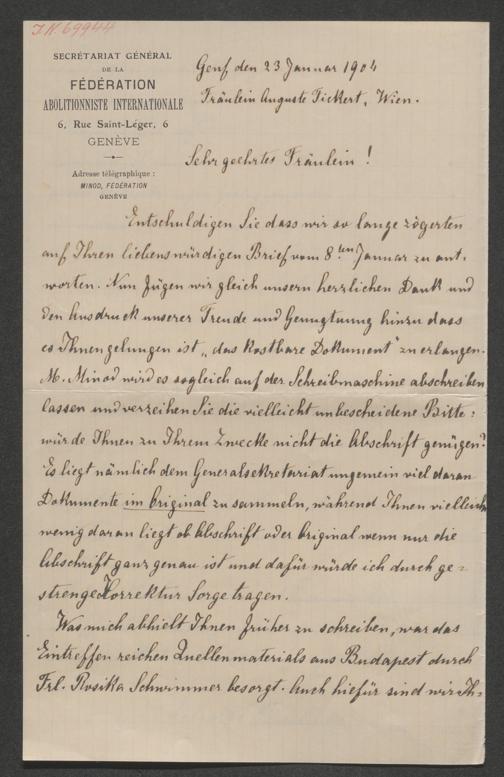 I.N. 69944
SECRÉTARIAT GÉNÉRAL
DE LA
FÉDÉRATION
ABOLITIONNISTE INTERNATIONALE
6, Rue Saint-Léger, 6
GENÈVE
Adresse télégraphique :
MINOD, FÉDÉRATION
GENÈVE
Genf den 23 Januar 1904
Fräulein Auguste Fickert, Wien.
Sehr geehrtes Fräulein!
Entschuldigen Sie dass wir so lange zögerten
auf Ihren liebenswürdigen Brief vom 8ten Januar zu ant-
worten. Nun fügen wir gleich unsern herzlichen Dank und
den Ausdruck unserer Freude und Genugtuung hinzu dass
es Ihnen gelungen ist „das kostbare Dokument" zu erlangen.
M. Minod wird es sogleich auf der Schreibmaschine abschreiben
lassen und verzeihen Sie die vielleicht unbescheidene Bitte:
würde Ihnen zu Ihrem Zwecke nicht die Abschrift genügen?
Es liegt nämlich dem Generalsekretariat ungemein viel daran
Dokumente im Original zu sammeln, während Ihnen vielleicht
wenig daran liegt ob Abschrift oder Original wenn nur die
Abschrift ganz genau ist und dafür würde ich durch ge-
strenge Korrektur Sorge tragen.
Was mich abhielt Ihnen früher zu schreiben, war das
Eintreffen reichen Quellenmaterials aus Budapest durch
Frl. Rosika Schwimmer besorgt. Auch hiefür sind wir Ih-